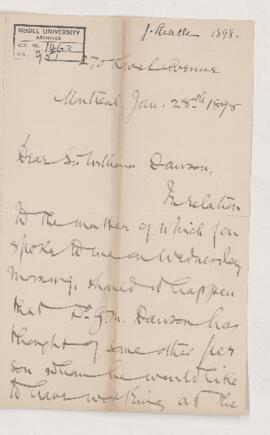 McGILL UNIVERSITY
ARCHIVES
ACC. NO. 1463
REF. 951
J. Reade 1898.
270 Laval Avenue
Montreal, Jan. 28th 1898
Dear Sir William Dawson,
In relation
to the matter of which you
spoke to me on Wednesday
morning, should it happen
that Dr G. M. Dawson has
thought of some other per
son whom he would like
to have working at the